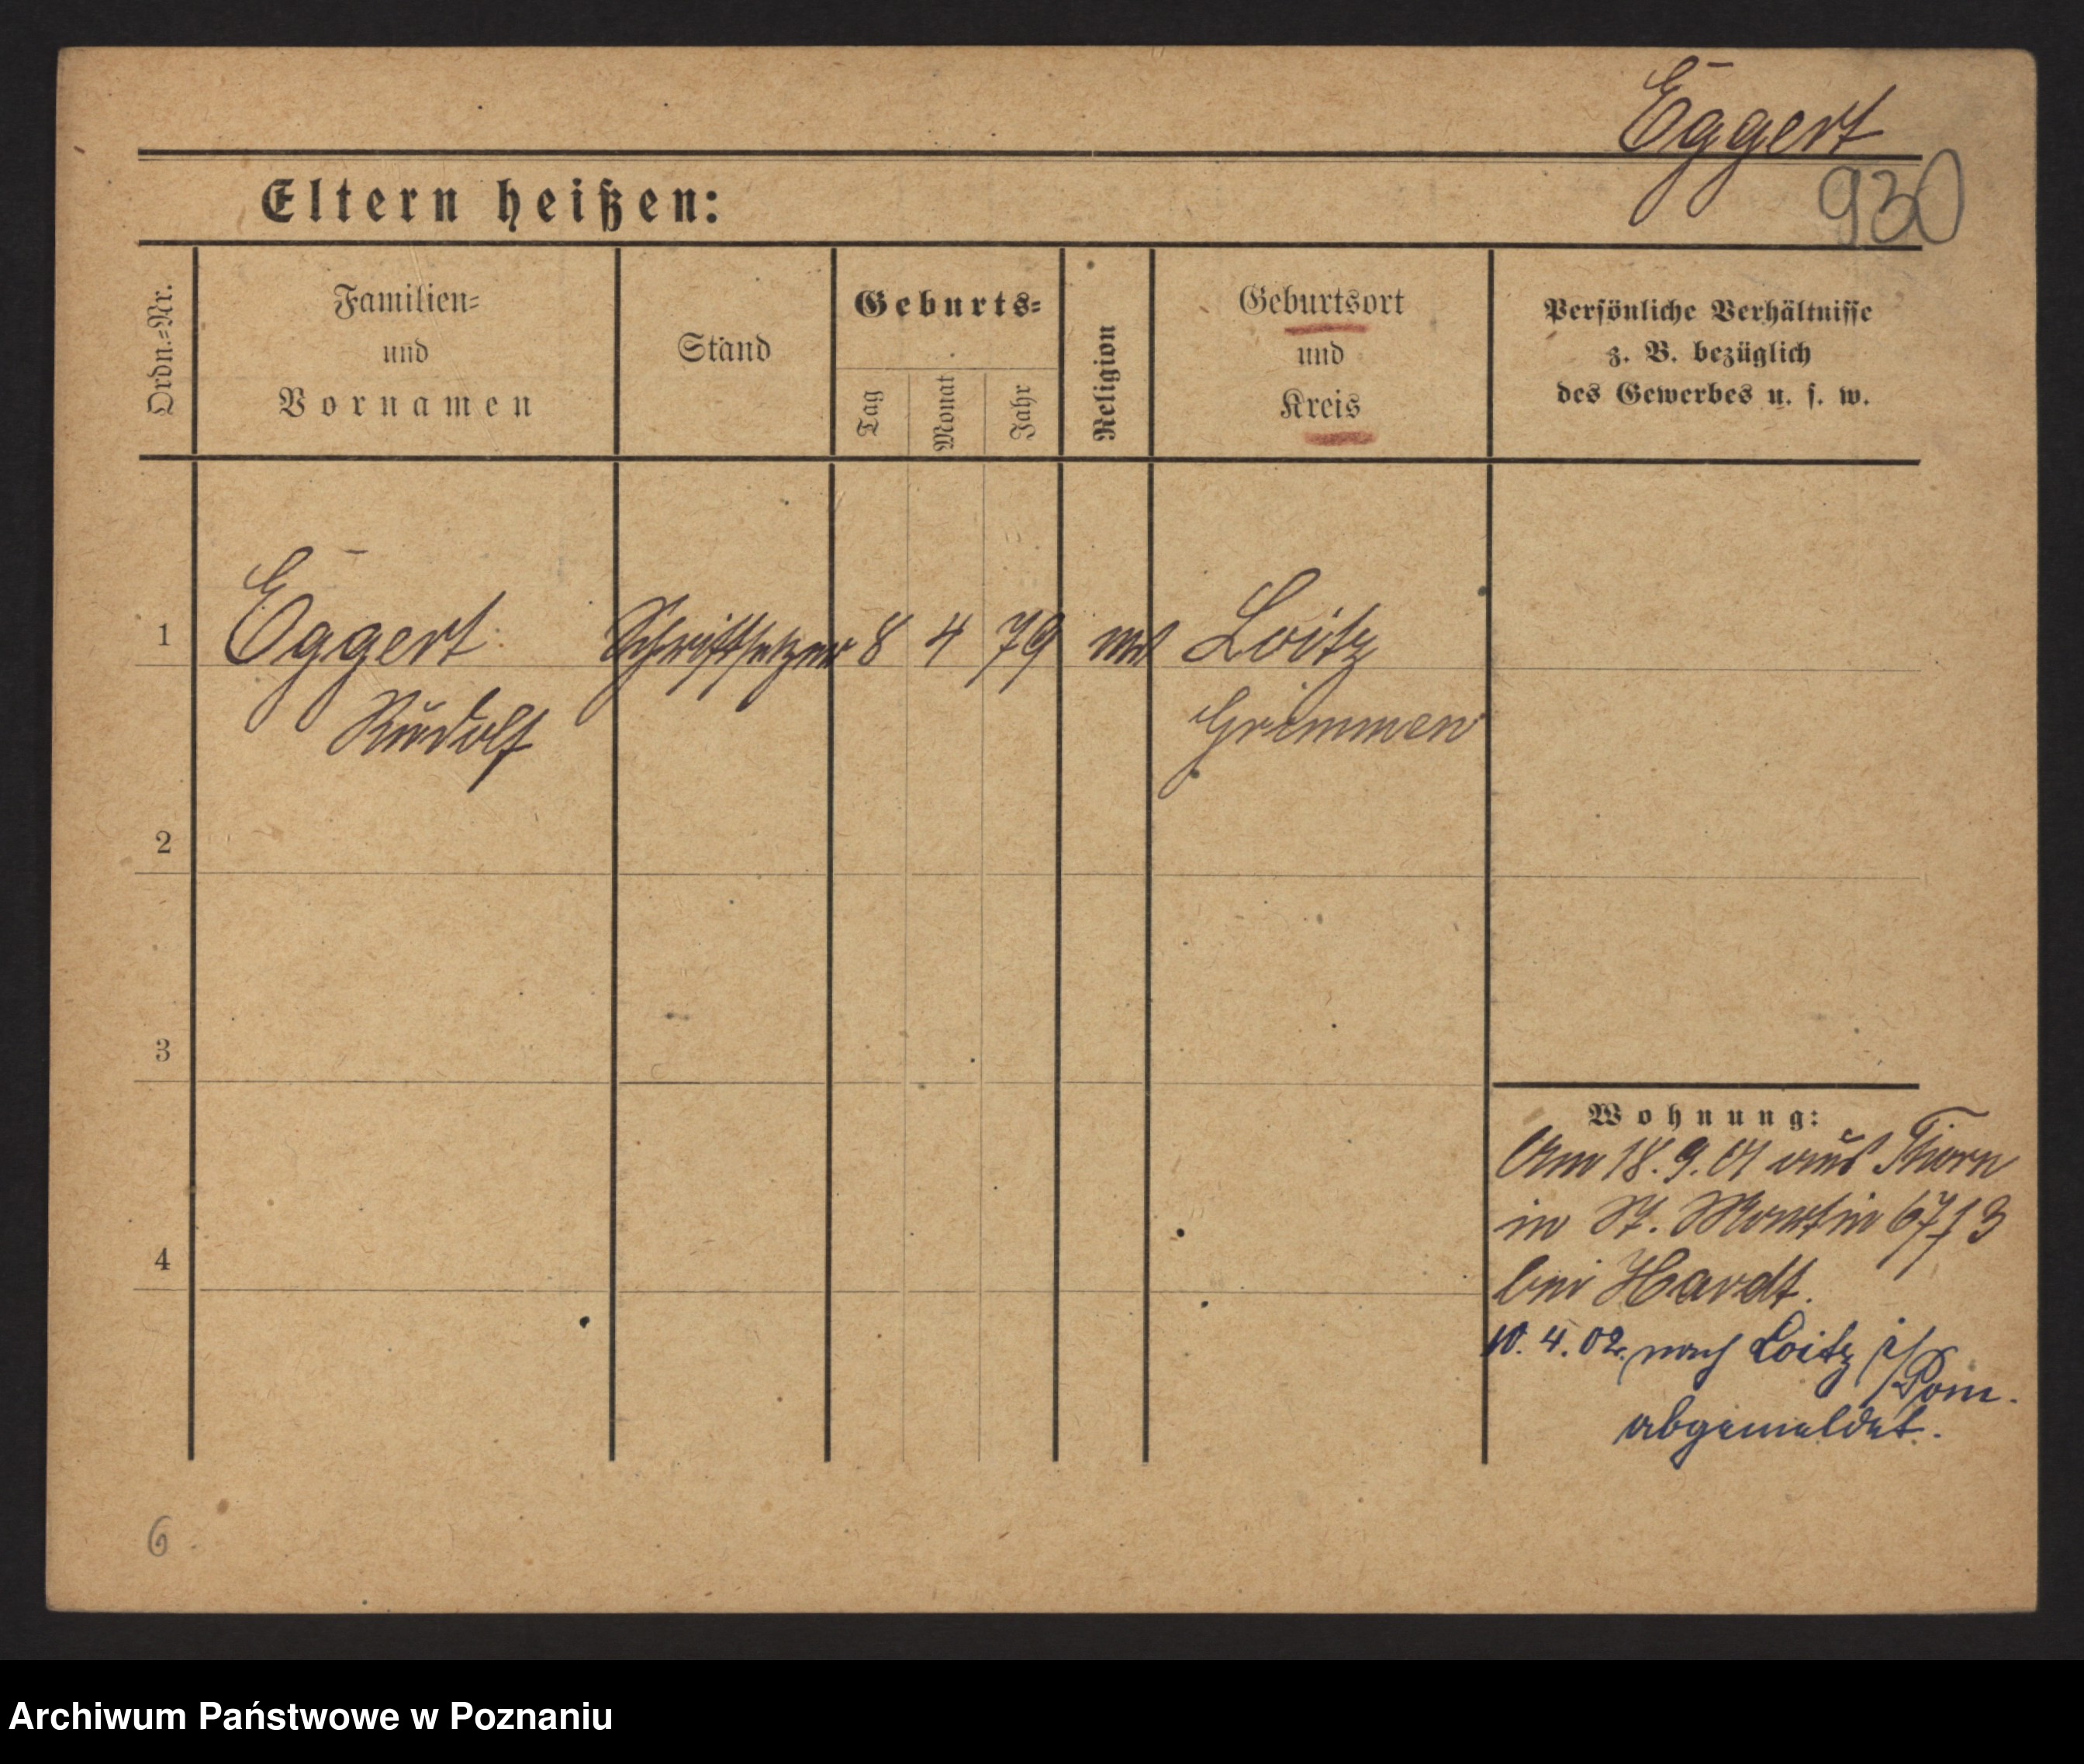 Eggert
930
Eltern heißen:
Ordn.-Nr.
Familien-
und
Vornamen
Stand
Geburts-
Tag
Monat
Jahr
Religion
Geburtsort
und
Kreis
Persönliche Verhältnisse
z. B. bezüglich
des Gewerbes u. s. w.
1 Eggert Schriftsetzer 8 4 79 Loitz
Rudolf Grimmen
2
3
4
Wohnung:
Am 18.9.01 aus Thorn
in St. Martin
bei Hardt.
10.4.02. nach Loitz i/Pom.
abgemeldet.
6
Archiwum Państwowe w Poznaniu